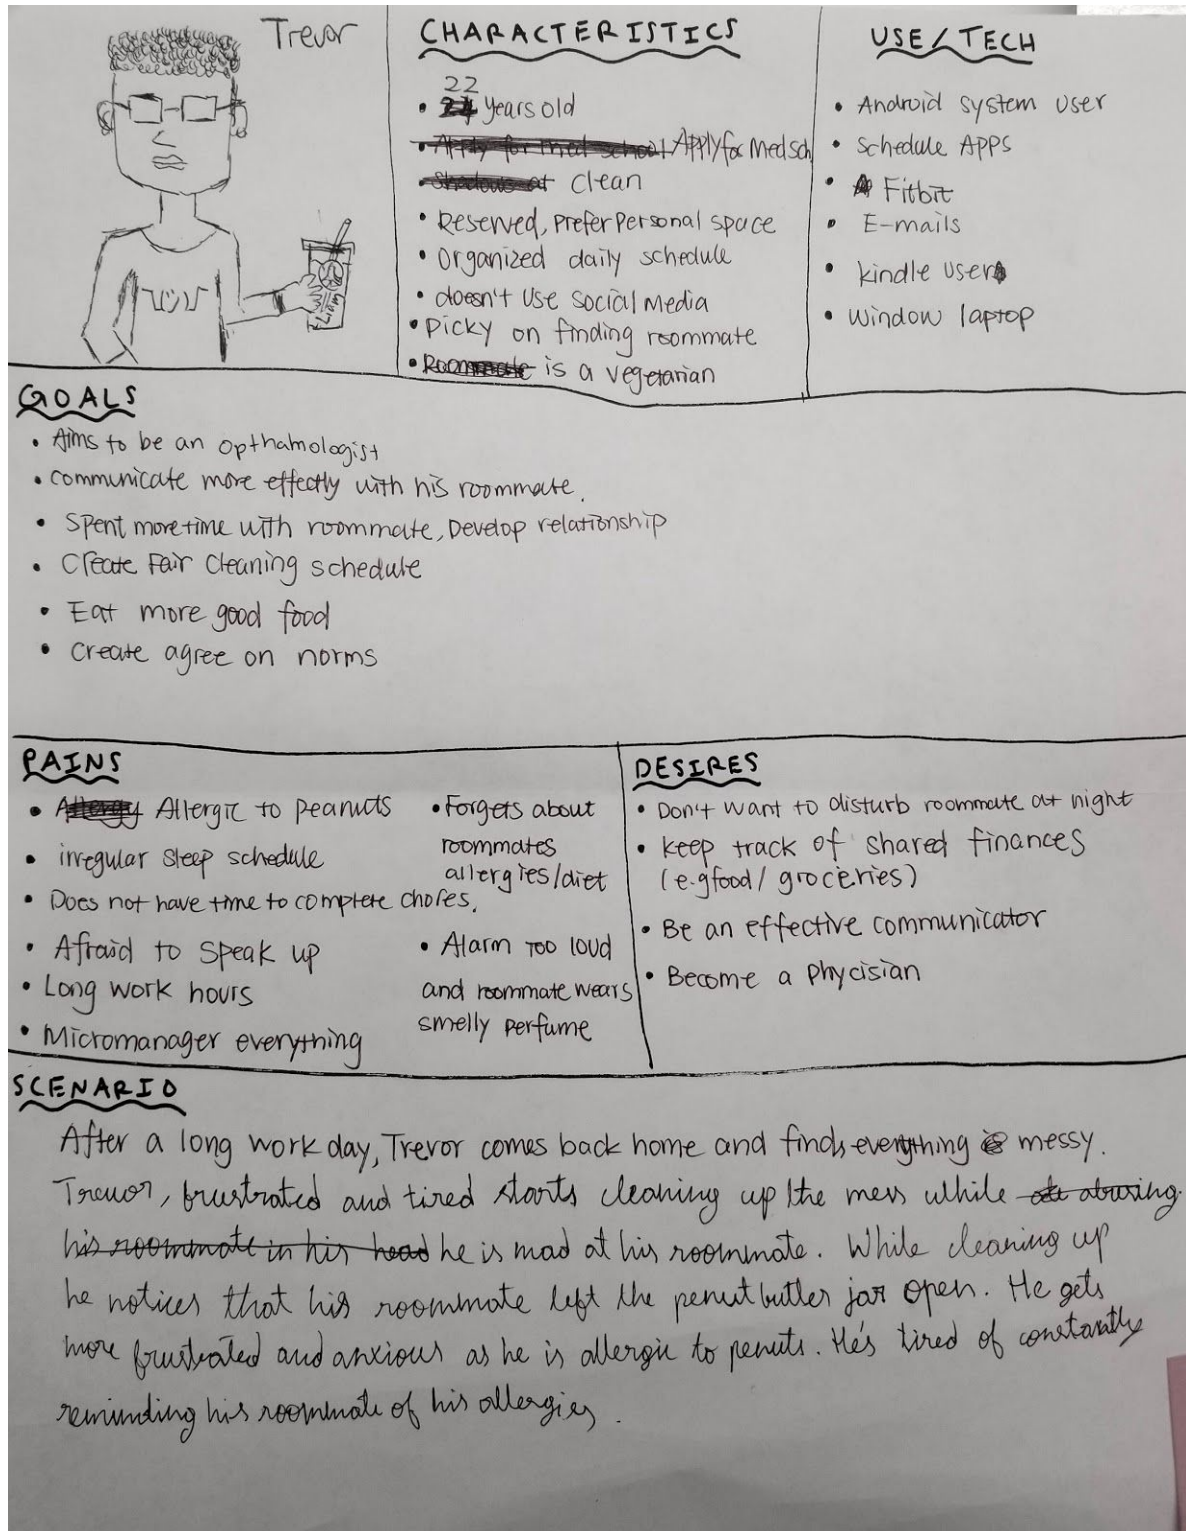 Trevor
CHARACTERISTICS
• 22 years old
• Apply for med school Apply for Med sch
• Shadows at clean
• Reserved, prefer personal space
• Organized daily schedule
• doesn't use social media
• Picky on finding roommate
• Roommate is a vegetarian
USE/TECH
• Android system user
• Schedule APPS
• Fitbit
• E-mails
• kindle user
• Window laptop
GOALS
• Aims to be an opthamologist
• communicate more effectly with his roommate.
• Spent more time with roommate, Develop relationship
• Create Fair Cleaning schedule
• Eat more good food
• Create agree on norms
PAINS
• Allergy Allergic to peanuts
• irregular sleep schedule
• Does not have time to complete chores.
• Afraid to speak up
• Long work hours
• Micromanager everything
• Forgets about
roommates
allergies/diet
• Alarm too loud
and roommate wears
smelly perfume
DESIRES
• Don't want to disturb roommate at night
• keep track of shared finances
(e.g food/ groceries)
• Be an effective communicator
• Become a phycisian
SCENARIO
After a long work day, Trevor comes back home and finds everything is messy.
Trevor, frustrated and tired starts cleaning up the mess while abusing
his roommate in his head he is mad at his roommate. While cleaning up
he notices that his roommate left the penut butter jar open. He gets
more frustrated and anxious as he is allergic to penuts. He's tired of constantly
reminding his roommate of his allergies.